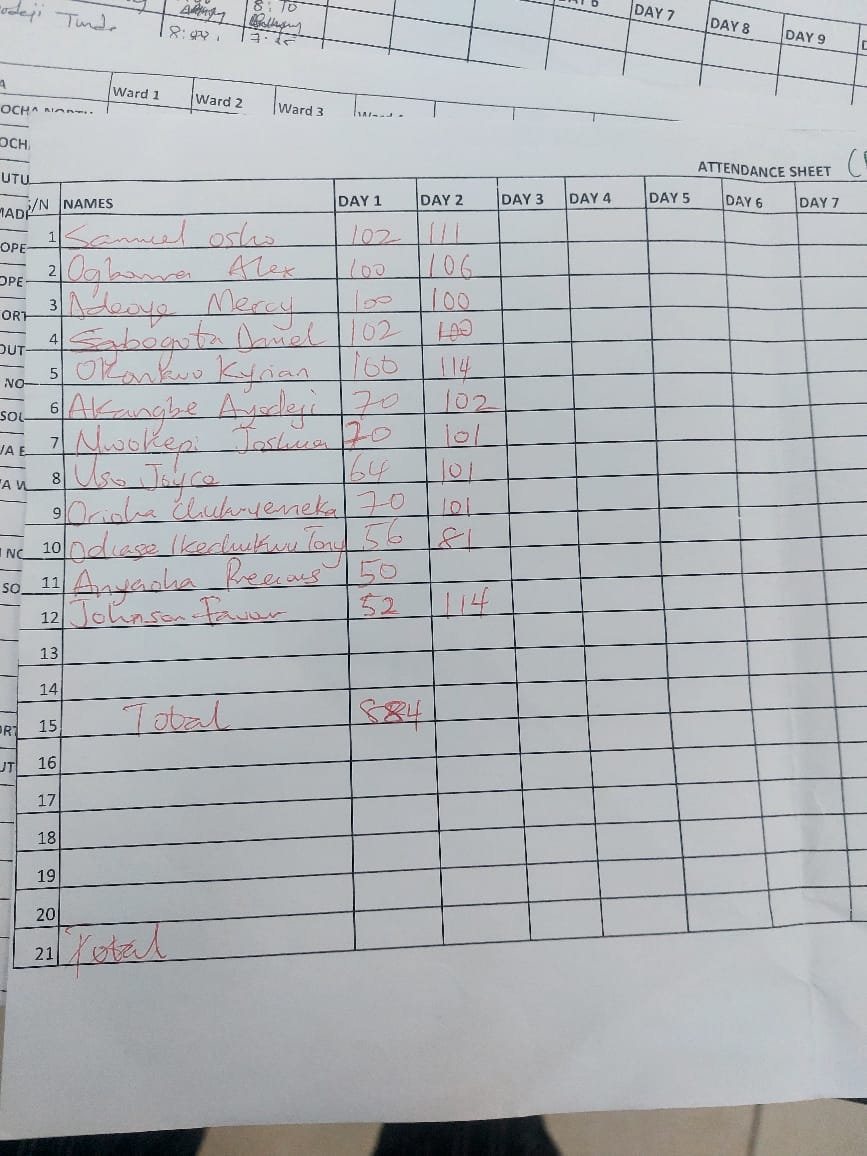 odeji Tunde 8:10
8:44. 7.25
DAY 7 DAY 8 DAY 9
Ward 1 Ward 2 Ward 3
OCHA NORTH
OCH
UTU
MAD
OPE
OPE
ORT
OUT
NO
SOU
/A E
A W
NO
SO
RT
UT
ATTENDANCE SHEET (
S/N NAMES DAY 1 DAY 2 DAY 3 DAY 4 DAY 5 DAY 6 DAY 7
1 Samuel Osho 102 111
2 Ogbonna Alex 100 106
3 Adeoye Mercy 100 100
4 Daniel 102 100
5 Okonkwo Kyrian 100 114
6 Akangbe Ayodeji 70 102
7 Nwokepi Joshua 70 101
8 Uso Joyce 64 101
9 Orioha Chukwyemeka 70 101
10 Odiase Ikechukwu Tony 56 81
11 Anyaoha Precious 50
12 Johnson Favour 52 114
13
14
15 Total 884
16
17
18
19
20
21 Total